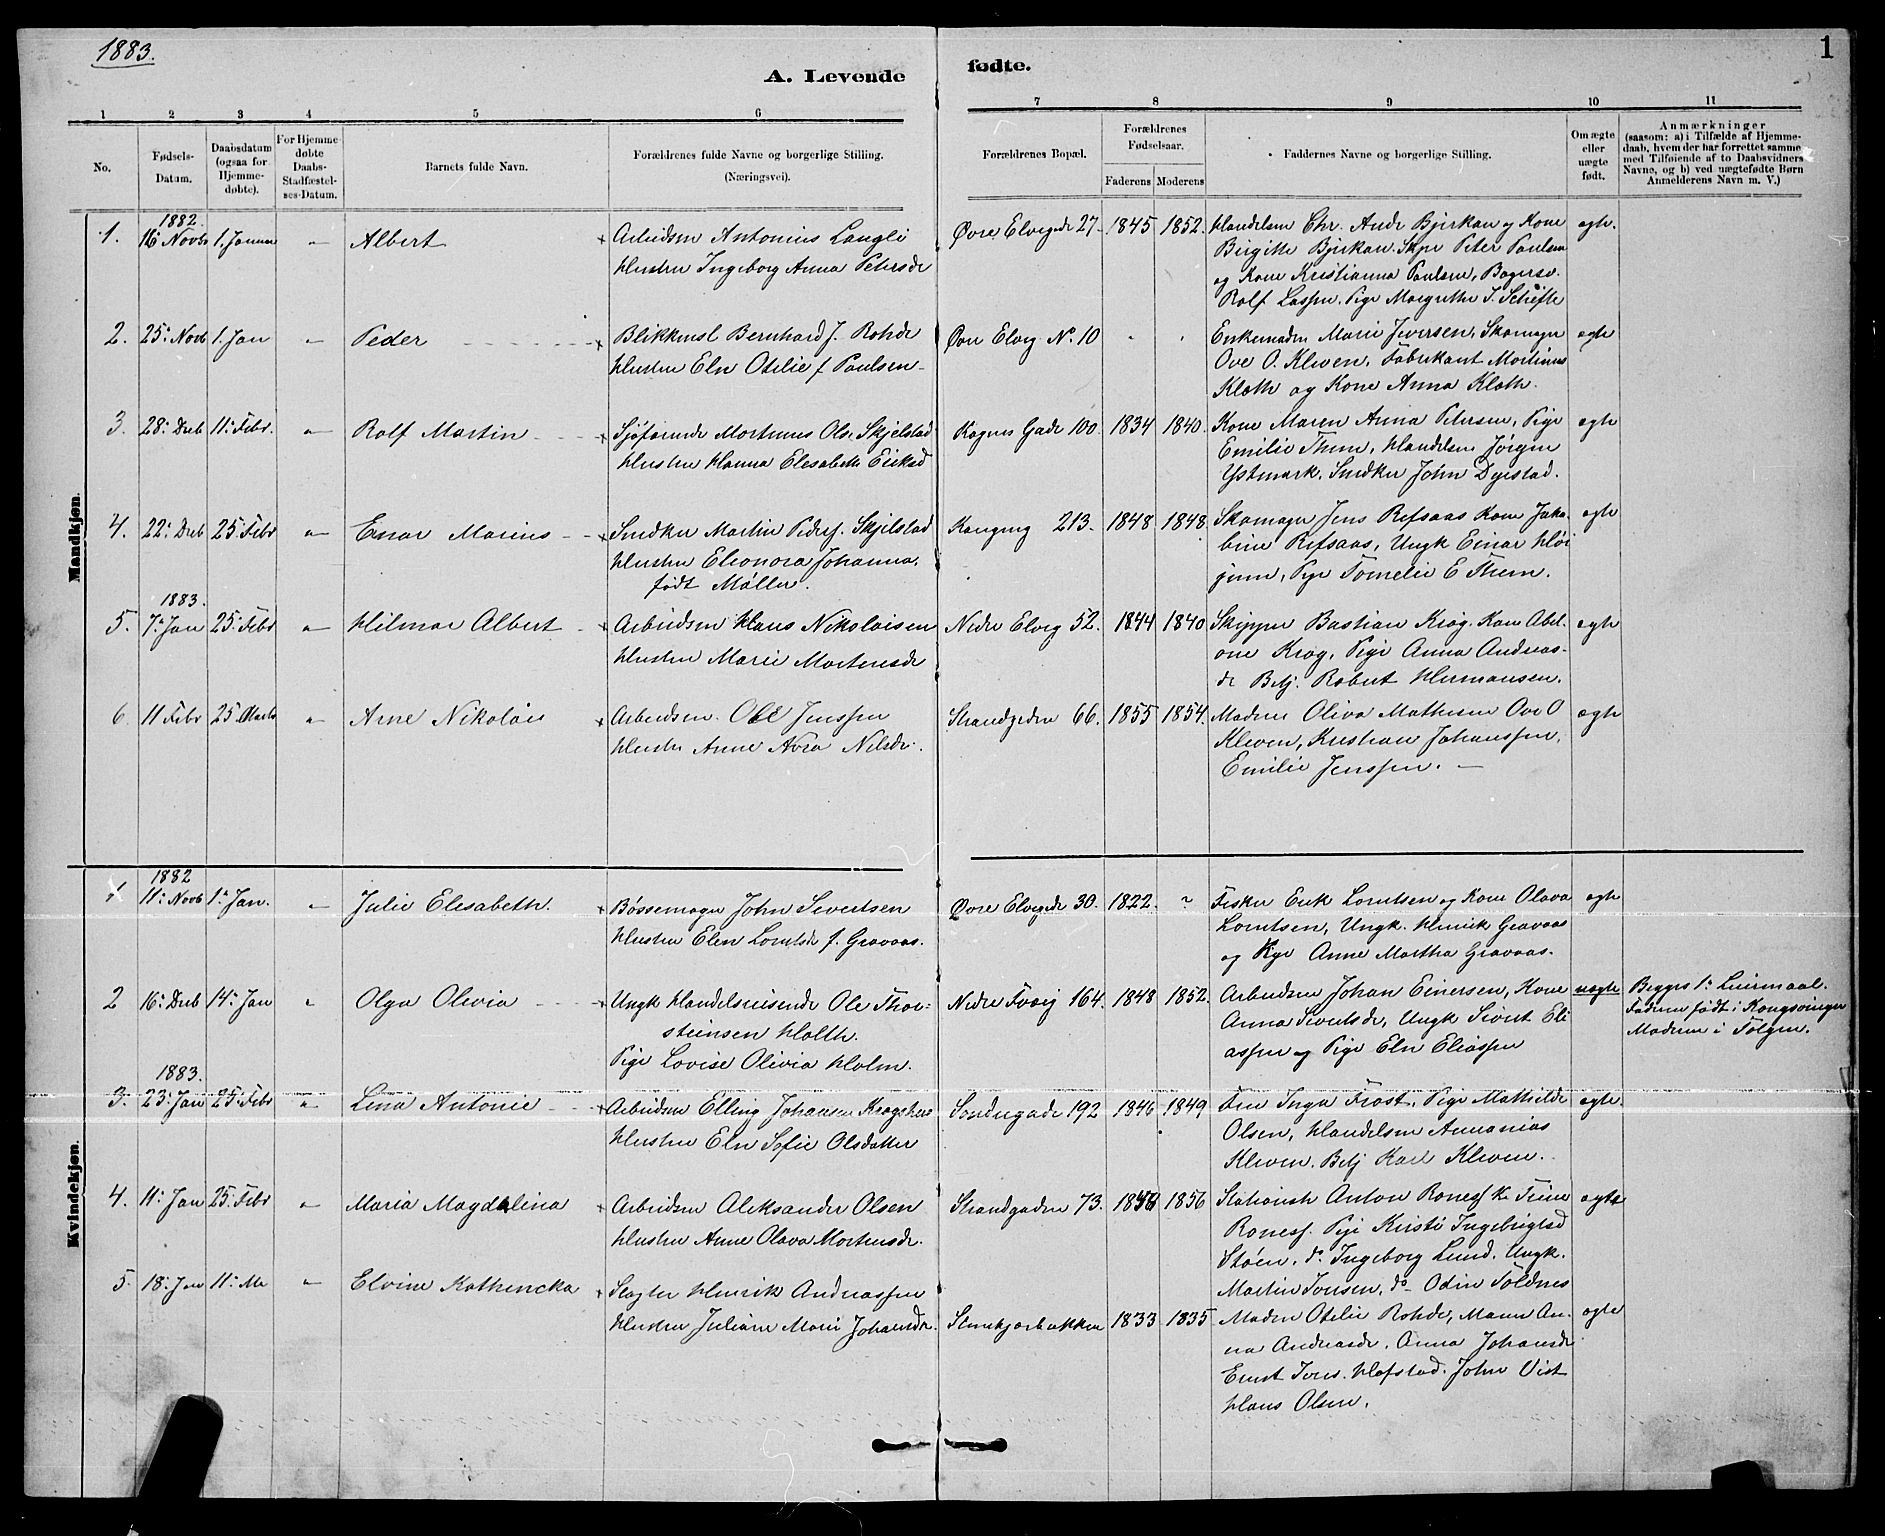 1883.
1
A. Levende fødte.
1 2 3 4 5 6 7 8 9 10 11
No.
Fødsels-Datum.
Daabsdatum (ogsaa for Hjemme-døbte).
For Hjemme-døbte Daabs-Stadfæstel-ses-Datum.
Barnets fulde Navn.
Forældrenes fulde Navne og borgerlige Stilling.
(Næringsvei).
Forældrenes Bopæl.
Forældrenes Fødselsaar.
Faderens Moderens
Faddernes Navne og borgerlige Stilling.
Om ægte eller uægte født.
Anmærkninger
(saasom: a) i Tilfælde af Hjemme-
daab, hvem der har forrettet samme
med Tilføiende af to Daabsvidners
Navne, og b) ved uægtefødte Børn
Anmelderens Navn m. V.)
Mandkjøn.
1882
1. 16 Novb 1. Januar " Albert Arbeidsm Antonius Langli Øvre Elvegde 27. 1845 1852. Handelsm Chr. Andr Bjerkan og Kone ægte.
Hustru Ingeborg Anna Petersdr Birgitte Bjerkan. Skpr Peter Paulsen
og Kone Kristianna Paulsen, Bagersv.
Rolf Lassen. Pige Margrethe J. Schefte
2. 25' Novb 1. Jan " Peder Blikkensl Bernhard J. Rohde Øvre Elvg No. 10 " " Enkemadm Marie Iversen, Skomager ægte
Hustru Eln Otilie f Paulsen Ove O. Kleven, Fabrikant Mortinus
Kloth og Kone Anna Kloth.
3. 28' Decb 11' Febr. " Rolf Martin Sjøfarende Mortinus Ols. Skjelstad Kagnes Gade 100. 1834 1840. Kone Maren Anna Petersen, Pige ægte
Hustru Hanna Elesabeth Eriksd Emilie Thim, Handelsm Jørgen
Ystmark. Snedker John Dyrstad.
4. 22' Decb 25' Febr " Enar Marius Snedker Martin Peders. Skjelstad Kongensg 213. 1848 1848. Skomager Jens Refsaas Kone Jako- ægte
Hustru Eleonora Johanna, bine Refsaas, Ungk Einar Høi
født Møller. jenn, Pige Tomelie E Them.
1883.
5. 7' Jan 25' Febr " Hilmar Albert Arbeidsm Hans Nikolaisen Nedre Elveg 52. 1844 1840 Skipper Bastian Krog. Kone Abel- ægte
Hustru Marie Mortensdr one Krog, Pige Anna Andreas-
dr Betj. Robert Hermansen.
6. 11 Febr 25 Marts " Arne Nikolai Arbeidsm. Ole Jenssen Strandgaden 66. 1855 1854. Madm Oliva Mathisen Ove O ægte
Hustru Anne Nilsdr. Kleven, Kristian Johanssen,
Emilie Jenssen.
Kvindekjøn.
1882
1 11' Novb 1' Jan. " Julie Elesabeth. Bøssemager John Sivertsen Øvre Elvegde 30. 1822. ? Fisker Erik Lorntsen og Kone Olava ægte
Hustru Eln Lorntsdr f. Gravaas. Lorntsen, Ungk. Henrik Gravaas
og Pige Anne Martha Gravaas.
2 16' Decb 14' Jan " Olga Olivia Ungk Handelsreisende Ole Thor- Nedre 164. 1848 1852. Arbeidsm Johan Einersen, Kone uægte Begges 1' Leiermaal.
steinsen Holth. Anna Sivertsdr, Ungk Sivert Eli Faderen født i Kongsvinger
Pige Lovise Olivia Holm. assen og Pige Eln Eliassen Moderen i Tolgen.
1883.
3. 23' Jan 25' Febr " Lina Antonie Arbeidsm Elling Johansen Søndregade 192 1846 1849 Frue Inga Frost, Pige Mathilde ægte.
Hustru Eln Sofie Olsdatter Olsen, Handelsm Annanias
Kleven. Betj Karl Kleven.
4. 11' Jan 25' Febr " Maria Magdalina Arbeidsm Aleksander Olsen Strandgaden 73. 1856 1856 Anton Ronesf K. Trine ægte
Hustru Anne Olava Mortensdr. Ronesf. Pige Kirsti Ingebrigtsd
Støen. do Ingeborg Lund. Ungk.
Martin Tonsen, do Odin Foldnes
5. 18' Jan 11' Ma " Elvine Kathencka Slagter Henrik Andreassen
Hustru Juliane Marie Johansdr. Stenkjærbakken 1833 1835 Madm Otilie Rohde, Maren An- ægte
na Andreasdr. Anna Johansdr
Ernst Hofstad. John Vist
Hans Olsen.